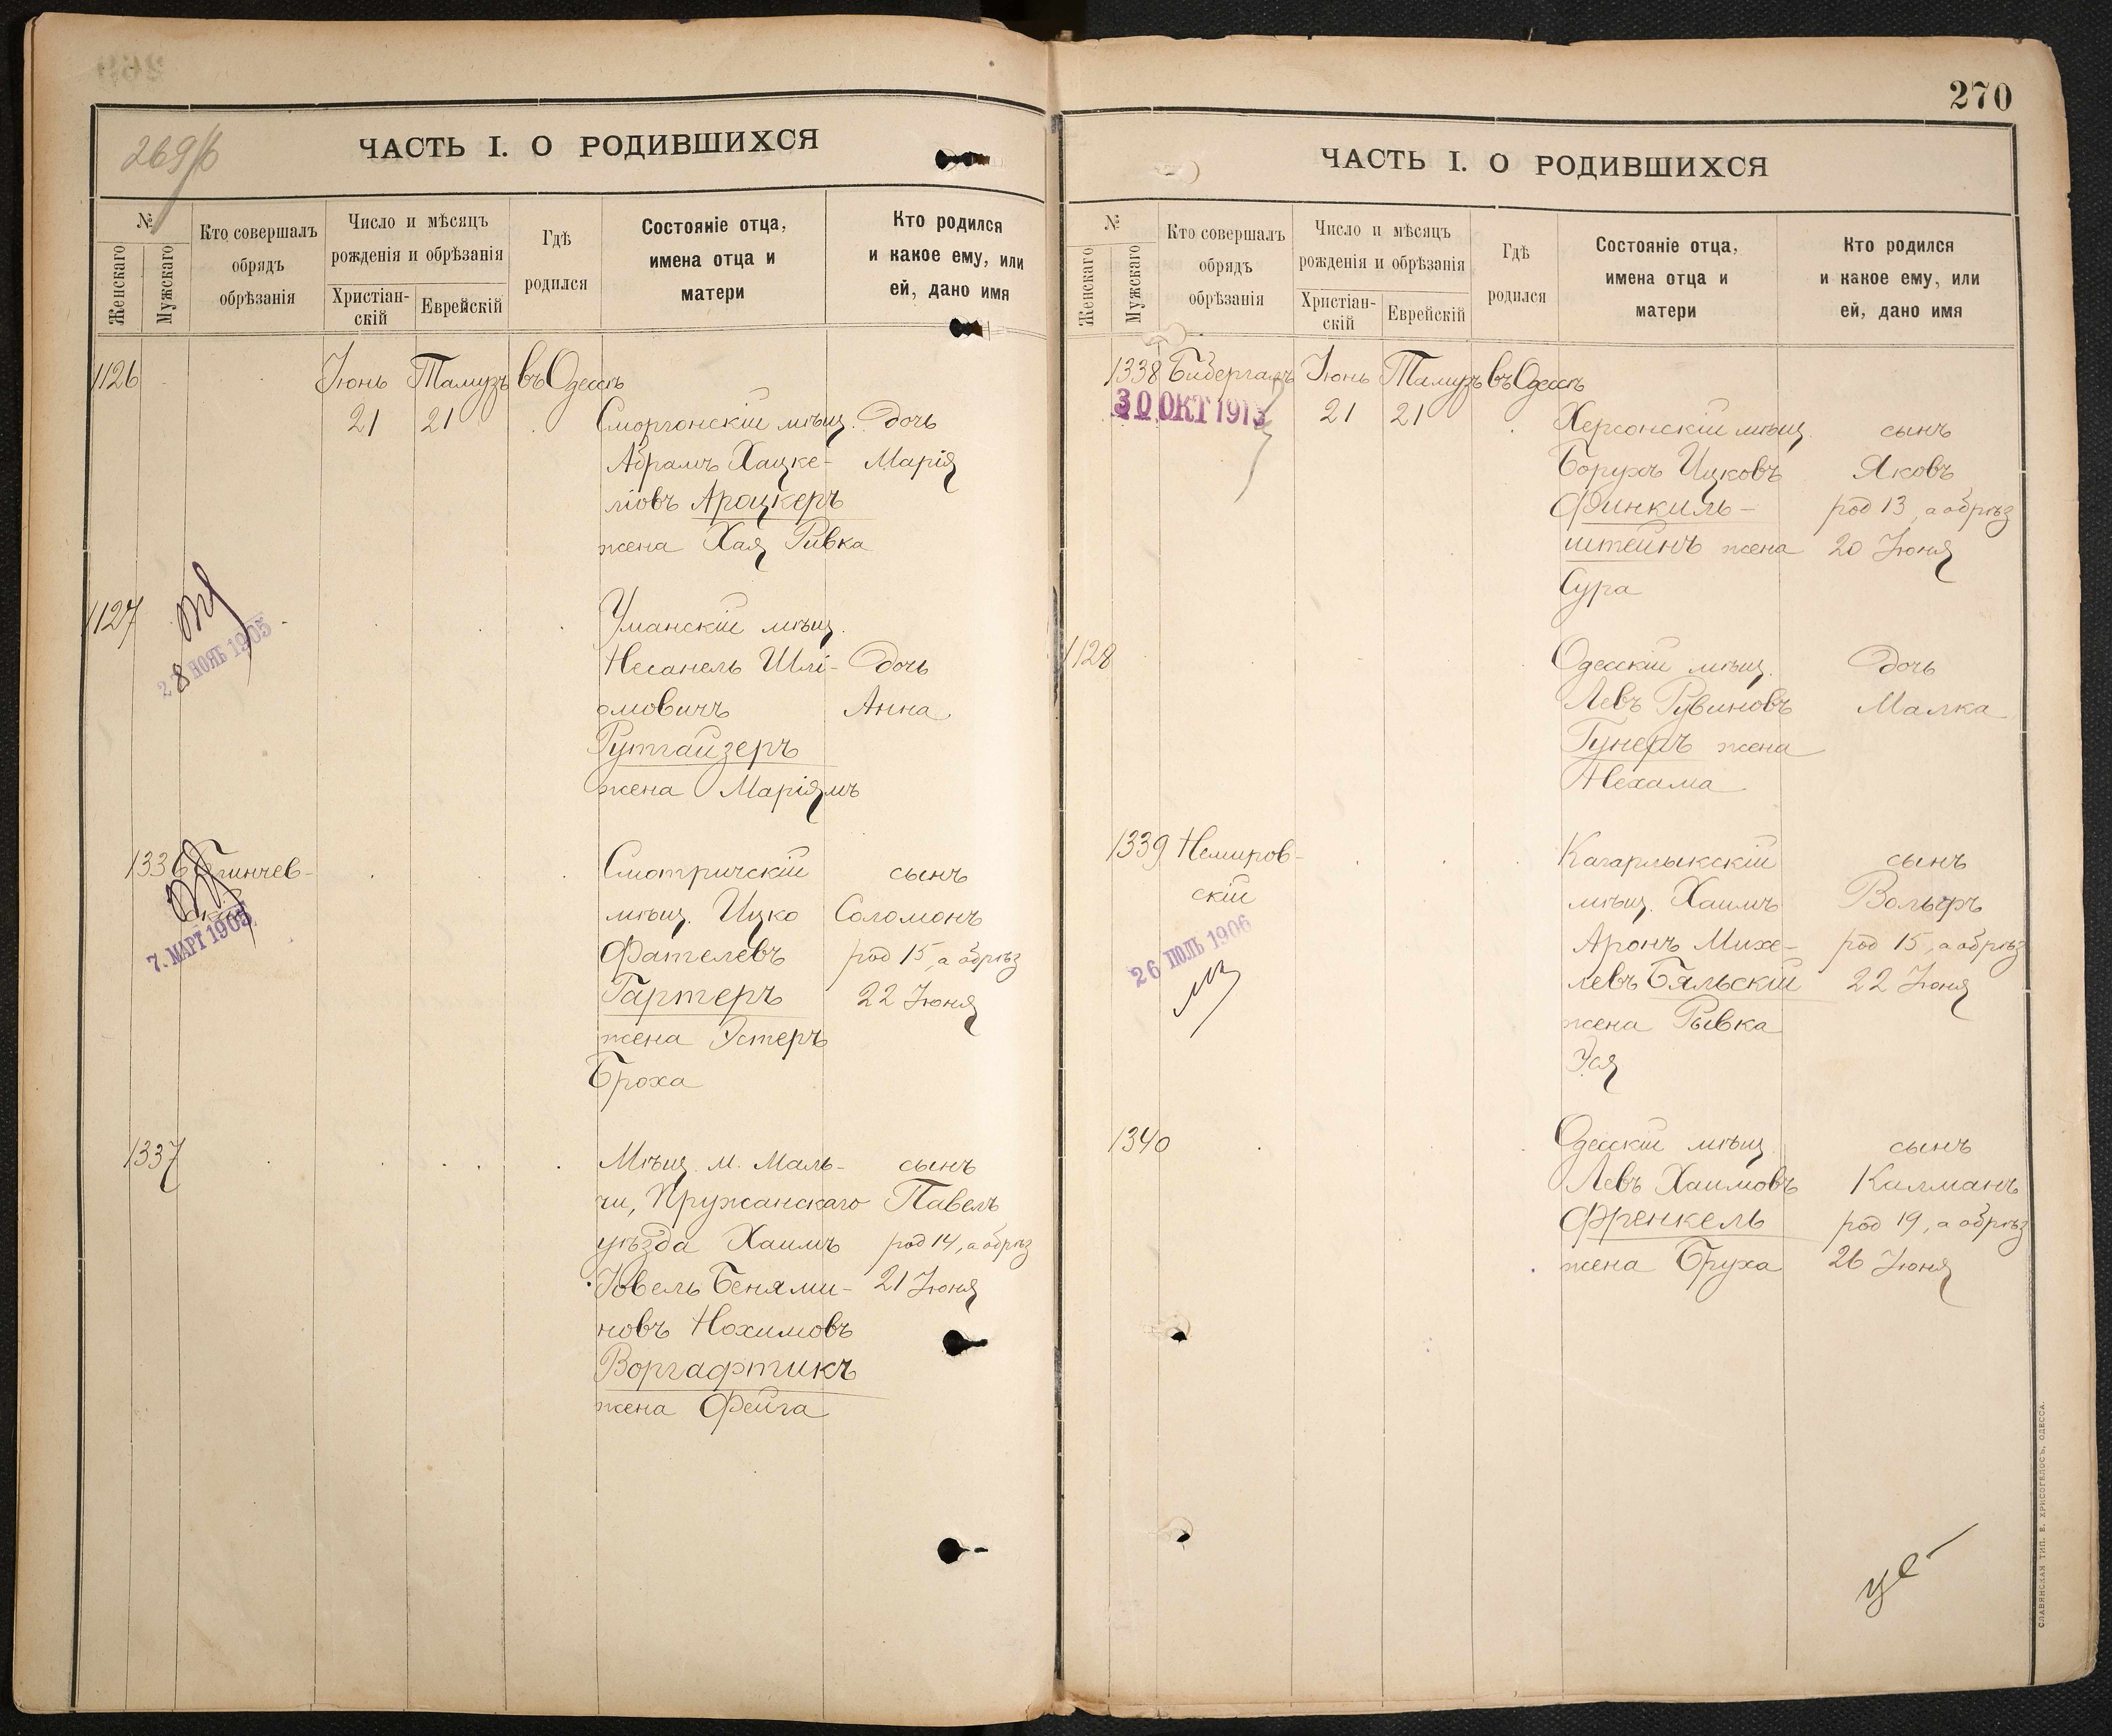 269/б
ЧАСТЬ I. О РОДИВШИХСЯ
№
Женскаго
Мужскаго
Кто совершалъ
обрядъ
обрѣзанія
Число и мѣсяцъ
рожденія и обрѣзанія
Христіан-
скій
Еврейскій
Гдѣ
родился
Состояніе отца,
имена отца и
матери
Кто родился
и какое ему, или
ей, дано имя
1126 Іюнь Тамузъ въ Одессѣ
21 21 Сморгонскій мѣщ. дочь
Абрамъ Хацке- Марія
ліовъ Ароцкеръ
жена Хая Ривка
1127 Уманскій мѣщ.
28 НОЯБ 1905
Несанель Шлі- дочь
омовичъ Анна
Рутгайзеръ
жена Маріямъ
1336 Глинчев- Смотричскій сынъ
скій мѣщ. Ицко Соломонъ
7. МАРТ 1905
Фателевъ род 15, а обрѣз
Гартеръ 22 Іюня
жена Эстеръ
Броха
1337 Мѣщ. м. Маль- сынъ
чи, Пружанскаго Павелъ
уѣзда Хаимъ род 14, а обрѣз
Іовель Беня­ми- 21 Іюня
новъ Нохимовъ
Воргафтикъ
жена Фейга
270
ЧАСТЬ I. О РОДИВШИХСЯ
№
Женскаго
Мужскаго
Кто совершалъ
обрядъ
обрѣзанія
Число и мѣсяцъ
рожденія и обрѣзанія
Христіан-
скій
Еврейскій
Гдѣ
родился
Состояніе отца,
имена отца и
матери
Кто родился
и какое ему, или
ей, дано имя
1338 Бибергалъ Іюнь Тамузъ въ Одессѣ
30 ОКТ 1913
21 21 Херсонскій мѣщ. сынъ
Борухъ Ицковъ Яковъ
Финкиль- род 13, а обрѣз
штейнъ жена 20 Іюня
Сура
1128 Одесскій мѣщ. дочь
Левъ Рувиновъ Малка
Гунеръ жена
Нехама
1339 Немиров- Кагарлыкскій сынъ
скій мѣщ. Хаимъ Вольфъ
26 ІЮЛЬ 1906
Аронъ Михе- род 15, а обрѣз
левъ Бяльскій 22 Іюня
жена Рывка
Эся
1340 Одесскій мѣщ. сынъ
Левъ Хаимовъ Калманъ
Френкель род 19, а обрѣз
жена Бруха 26 Іюня
СЛАВЯНСКАЯ ТИП. Е. ХРИСОГЕЛОСЪ, ОДЕССА.